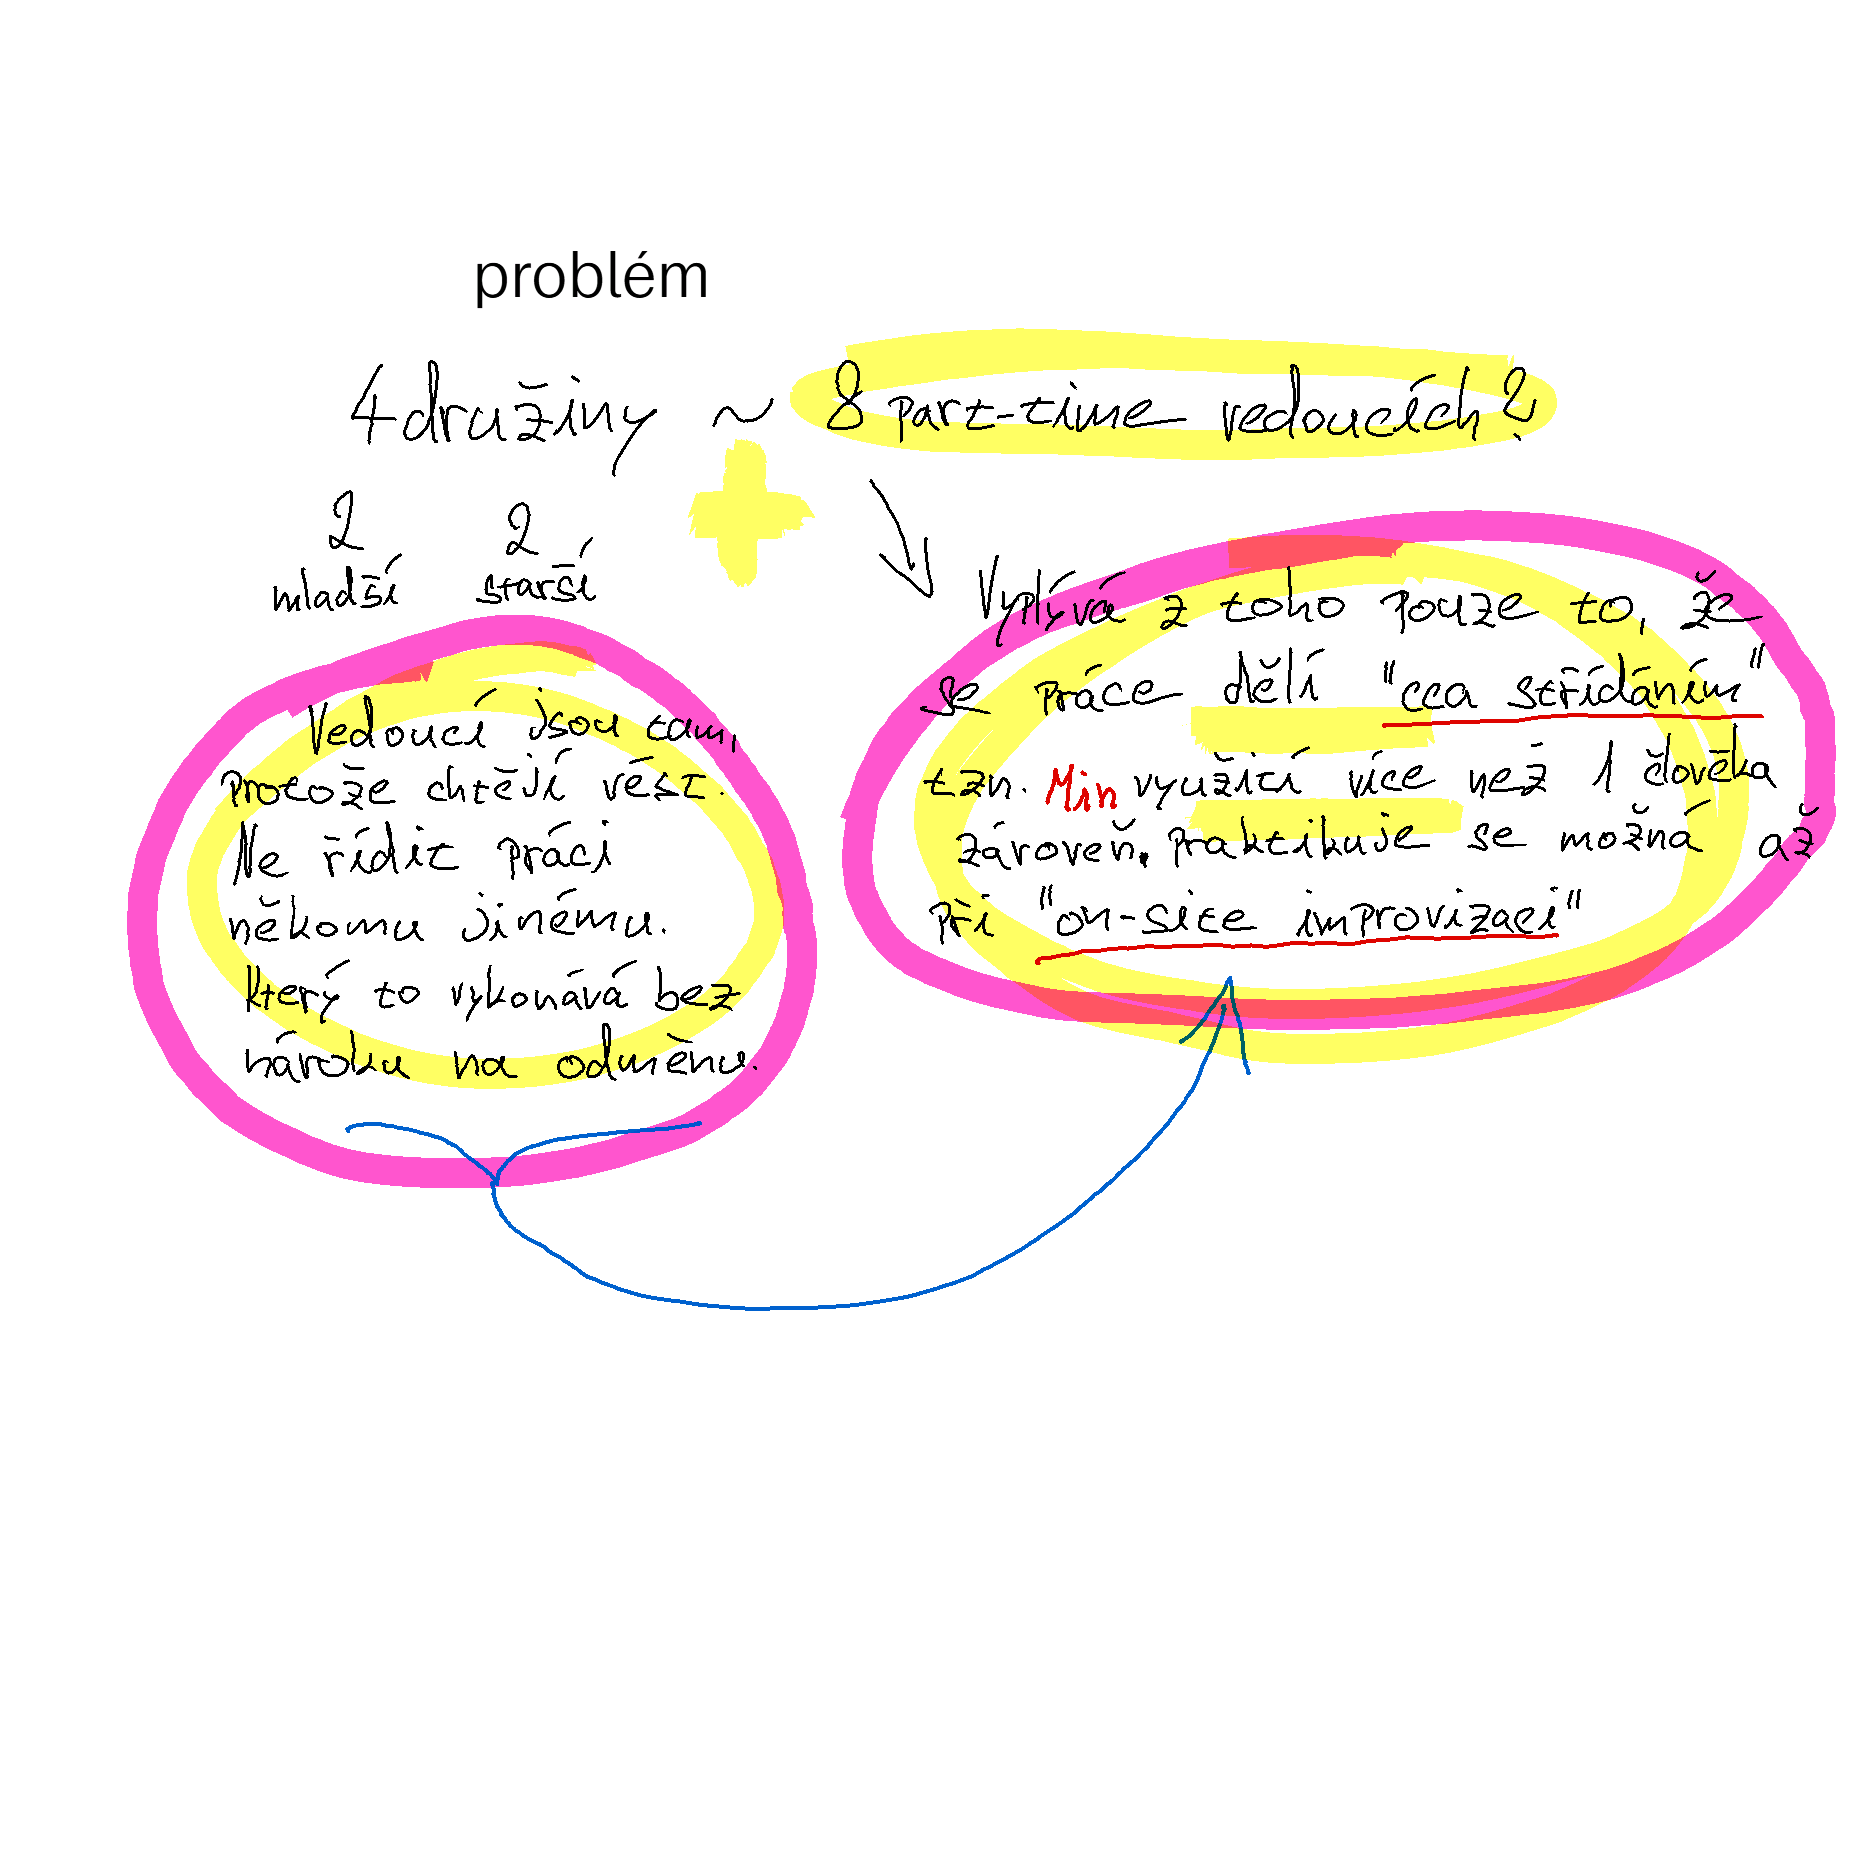 problém
4 družiny ~ 8 part-time vedoucích?
2 2
mladší starší
Vedoucí jsou tam,
protože chtějí vést.
Ne řídit práci
někomu jinému.
Který to vykonává bez
nároku na odměnu.
Vyplývá z toho pouze to, že
se práce dělí "cca střídáním"
tzn. Min využití více než 1 člověka
zároveň. praktikuje se možná až
při "on-site improvizaci"